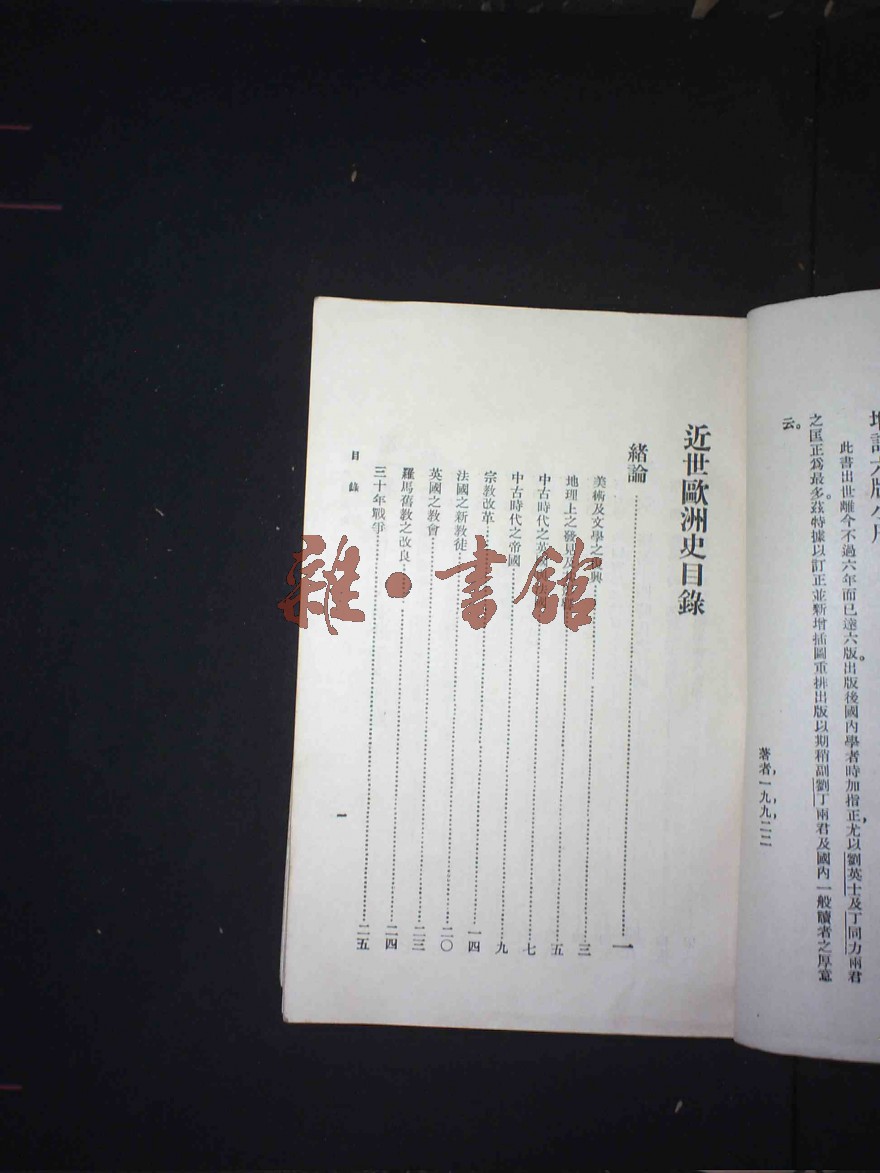 增訂六版小序
此書出世離今不過六年而已達六版。出版後國內學者時加指正，尤以劉英士及丁同力兩君
之匡正為最多。茲特據以訂正並新增插圖重排出版以期稍副劉丁兩君及國內一般讀者之厚意
云。
著者，一九，二，二二
近世歐洲史目錄
緒論……一
美術及文學之 興……三
地理上之發見及……五
中古時代之……七
中古時代之帝國……九
宗教改革……一四
法國之新教徒……二〇
英國之教會……二三
羅馬舊教之改良……二四
三十年戰爭……二五
目錄
一
雜·書館